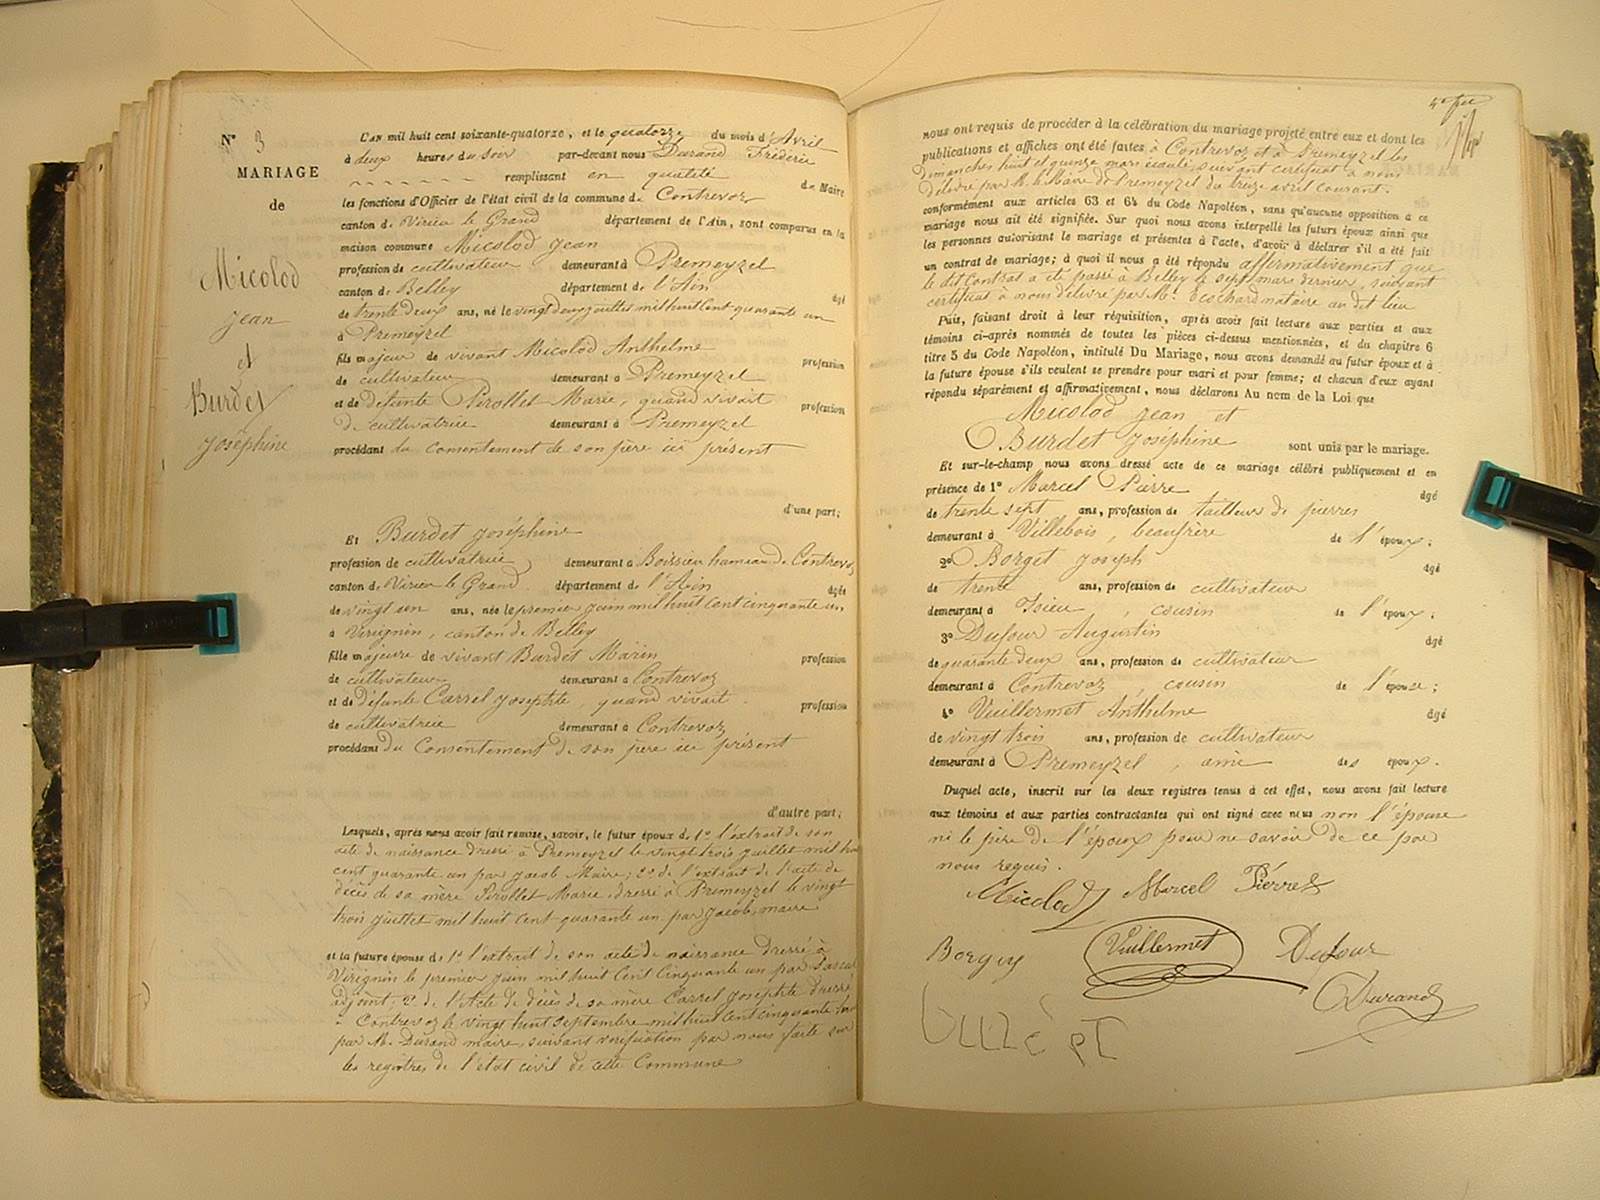 N° 3
MARIAGE
de
Micolod
Jean
et
Burdet
Joséphine
L'an mil huit cent soixante-quatorze, et le quatorze du mois d'Avril
à deux heures du soir par-devant nous Durand Frédéric
remplissant en qualité de Maire
les fonctions d'Officier de l'état civil de la commune de Contrevoz
canton de Virieu le Grand département de l'Ain, sont comparus en la
maison commune Micolod Jean
profession de cultivateur demeurant à Premeyzel
canton de Belley département de l'Ain âgé
de trente deux ans, né le vingt deux juillet mil huit cent quarante un
à Premeyzel
fils majeur de vivant Micolod Anthelme profession
de cultivateur demeurant à Premeyzel
et de défunte Pirollet Marie, quand vivait profession
de cultivatrice demeurant à Premeyzel
procédant du consentement de son père ici présent
d'une part;
Et Burdet Joséphine
profession de cultivatrice demeurant à Boissieu hameau de Contrevoz
canton de Virieu le Grand département de l'Ain âgée
de vingt un ans, née le premier juin mil huit cent cinquante un,
à Virignin, canton de Belley
fille majeure de vivant Burdet Marin profession
de cultivateur demeurant à Contrevoz
et de défunte Carrel Josephte, quand vivait profession
de cultivatrice demeurant à Contrevoz
procédant du Consentement de son père ici présent
d'autre part;
Lesquels, après nous avoir fait remise, savoir, le futur époux de 1° l'extrait de son
acte de naissance dressé à Premeyzel le vingt trois juillet mil huit
cent quarante un par Jacob Maire; 2° de l'extrait de l'acte de
décès de sa mère Pirollet Marie dressé à Premeyzel le vingt
trois juillet mil huit cent quarante un par Jacob, maire
et la future épouse de 1° l'extrait de son acte de naissance dressé à
Virignin le premier juin mil huit Cent Cinquante un par
adjoint; 2° de l'Acte de décès de sa mère Carrel Joséphte dressé
à Contrevoz le vingt huit septembre mil huit cent cinquante
par M. Durand maire, suivant vérification par nous faite sur
les registres de l'état civil de cette Commune
nous ont requis de procéder à la célébration du mariage projeté entre eux et dont les
publications et affiches ont été faites à Contrevoz et à Premeyzel les
Dimanches huit et quinze mars écoulé, suivant certificat à nous
délivré par M. le Maire de Premeyzel du treize avril courant.
conformément aux articles 63 et 64 du Code Napoléon, sans qu'aucune opposition à ce
mariage nous ait été signifiée. Sur quoi nous avons interpellé les futurs époux ainsi que
les personnes autorisant le mariage et présentes à l'acte, d'avoir à déclarer s'il a été fait
un contrat de mariage; à quoi il nous a été répondu affirmativement que
le dit Contrat a été passé à Belley le sept mars dernier, suivant
certificat à nous délivré par Me. Cochard notaire au dit lieu
Puis, faisant droit à leur réquisition, après avoir fait lecture aux parties et aux
témoins ci-après nommés de toutes les pièces ci-dessus mentionnées, et du chapitre 6
titre 5 du Code Napoléon, intitulé Du Mariage, nous avons demandé au futur époux et à
la future épouse s'ils veulent se prendre pour mari et pour femme; et chacun d'eux ayant
répondu séparément et affirmativement, nous déclarons Au nom de la Loi que
Micolod Jean et
Burdet Joséphine sont unis par le mariage.
Et sur-le-champ nous avons dressé acte de ce mariage célébré publiquement et en
présence de 1° Marcel Pierre âgé
de trente sept ans, profession de tailleur de pierres
demeurant à Villebois, beaufrère de l'époux;
2° Borget Joseph âgé
de trente ans, profession de cultivateur
demeurant à Isieu, cousin de l'époux;
3° Dufour Augustin âgé
de quarante deux ans, profession de cultivateur
demeurant à Contrevoz, cousin de l'épouse;
4° Vuillermet Anthelme âgé
de vingt trois ans, profession de cultivateur
demeurant à Premeyzel, ami des époux.
Duquel acte, inscrit sur les deux registres tenus à cet effet, nous avons fait lecture
aux témoins et aux parties contractantes qui ont signé avec nous non l'épouse
ni le père de l'époux pour ne savoir de ce par
nous requis.
Micolod Marcel Pierre
Vuillermet Dufour
Durand